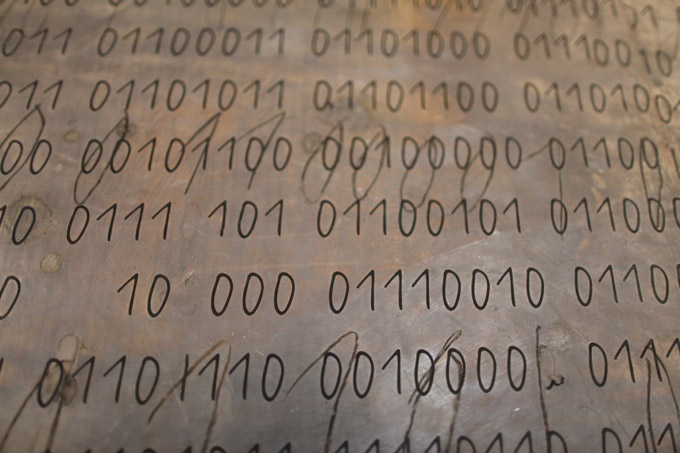 011 01100011 01101000 01110010
011 01101011 01101100 0110100
00 00101100 00100000 01100
10 0111 101 01100101 01100
0 10 000 01110010 0110
01101110 00100000 011